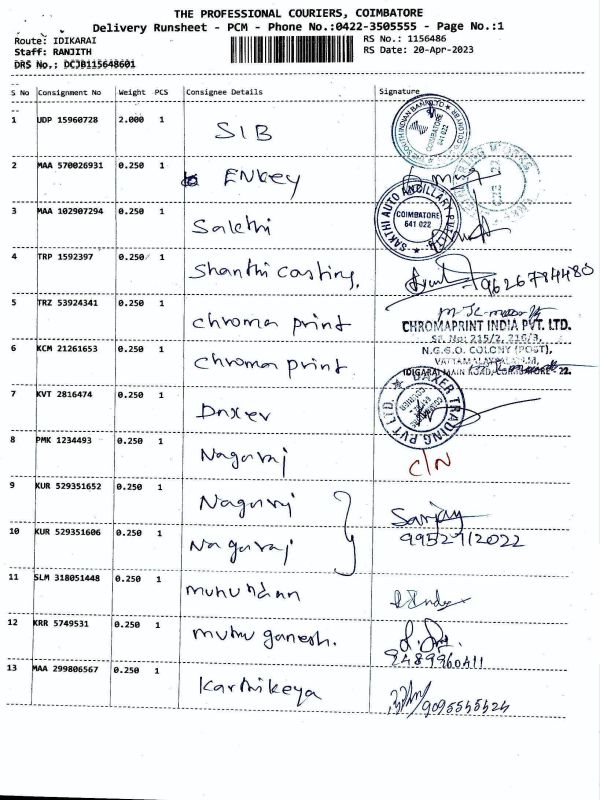 THE PROFESSIONAL COURIERS, COIMBATORE
Delivery Runsheet - PCM - Phone No.:0422-3505555 - Page No.:1
Route: IDIKARAI
Staff: RANJITH
DRS No.; DCJB115648601
RS No.: 1156486
RS Date: 20-Apr-2023
S No Consignment No Weight PCS Consignee Details Signature
1 UDP 15960728 2.000 1 SIB
COIMBATORE
641 022
2 MAA 570026931 0.250 1 ENkey
3 MAA 102907294 0.250 1 Sakthi
SAKTHI AUTO ANCILLARY PVT LTD
COIMBATORE
641 022
4 TRP 1592397 0.250 1 Shanthi casting. 9626784480
5 TRZ 53924341 0.250 1 chroma print
CHROMAPRINT INDIA PVT. LTD.
SF. No: 215/2, 216/3,
N.G.G.O. COLONY (POST),
VATTAMALAIPALAYAM,
IDIGARAI MAIN ROAD, COIMBATORE - 22.
6 KCM 21261653 0.250 1 chroma print
7 KVT 2816474 0.250 1 Daxer
DAXER TRADING PVT LTD.
8 PMK 1234493 0.250 1 Nagaraj C/N
9 KUR 529351652 0.250 1 Nagaraj Sanjay
10 KUR 529351606 0.250 1 Nagaraj 9952712022
11 SLM 318051448 0.250 1
12 KRR 5749531 0.250 1 muthu ganesh. 9489960411
13 MAA 299806567 0.250 1 Karthikeya 9095545524